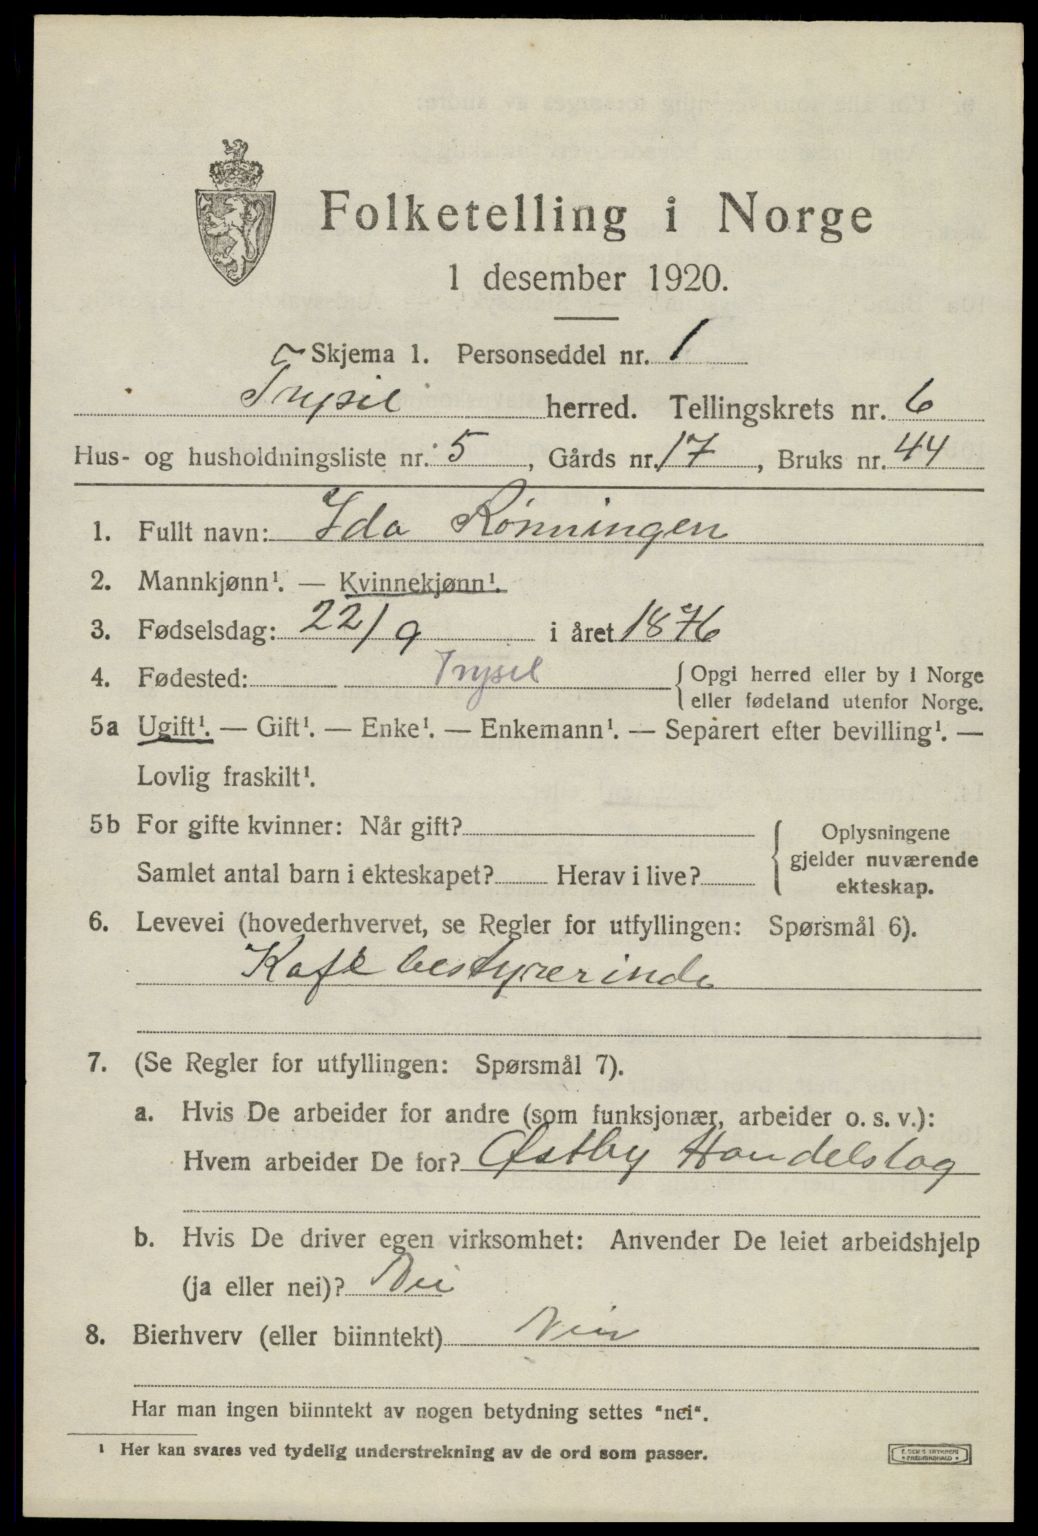 Folketelling i Norge
1 desember 1920.
Skjema 1. Personseddel nr. 1
Trysil herred. Tellingskrets nr. 6
Hus- og husholdningsliste nr. 5, Gårds nr. 17, Bruks nr. 44
1. Fullt navn: Ida Rønningen
2. Mannkjønn¹. — Kvinnekjønn¹.
3. Fødselsdag: 22/9 i året 1876
4. Fødested: Trysil { Opgi herred eller by i Norge
eller fødeland utenfor Norge.
5a Ugift¹. — Gift¹. — Enke¹. — Enkemann¹. — Separert efter bevilling¹. —
Lovlig fraskilt¹.
5b For gifte kvinner: Når gift?
Samlet antal barn i ekteskapet? Herav i live?
{ Oplysningene
gjelder nuværende
ekteskap.
6. Levevei (hovederhvervet, se Regler for utfyllingen: Spørsmål 6).
Kafe bestyrerinde
7. (Se Regler for utfyllingen: Spørsmål 7).
a. Hvis De arbeider for andre (som funksjonær, arbeider o. s. v.):
Hvem arbeider De for? Østby Handelslag
b. Hvis De driver egen virksomhet: Anvender De leiet arbeidshjelp
(ja eller nei)? Nei
8. Bierhverv (eller biinntekt)
Har man ingen biinntekt av nogen betydning settes "nei".
¹ Her kan svares ved tydelig understrekning av de ord som passer.